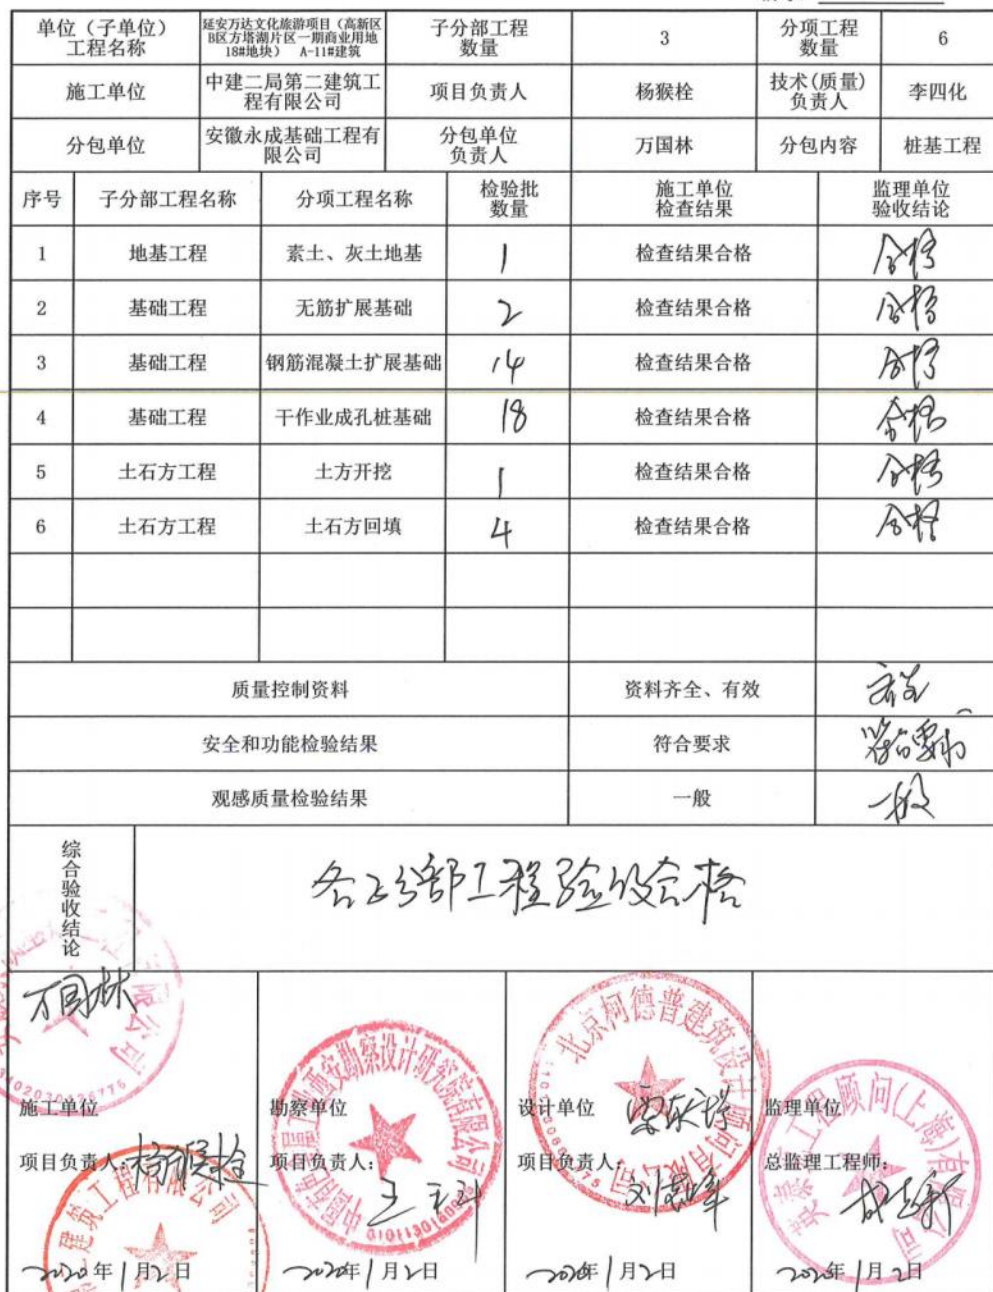 单位（子单位）
工程名称
延安万达文化旅游项目（高新区
B区方塔湖片区一期商业用地
18#地块） A-11#建筑
子分部工程
数量
3
分项工程
数量
6
施工单位
中建二局第二建筑工
程有限公司
项目负责人
杨猴栓
技术(质量)
负责人
李四化
分包单位
安徽永成基础工程有
限公司
分包单位
负责人
万国林
分包内容
桩基工程
序号
子分部工程名称
分项工程名称
检验批
数量
施工单位
检查结果
监理单位
验收结论
1 地基工程 素土、灰土地基 1 检查结果合格 合格
2 基础工程 无筋扩展基础 2 检查结果合格 合格
3 基础工程 钢筋混凝土扩展基础 14 检查结果合格 合格
4 基础工程 干作业成孔桩基础 18 检查结果合格 合格
5 土石方工程 土方开挖 1 检查结果合格 合格
6 土石方工程 土石方回填 4 检查结果合格 合格
质量控制资料 资料齐全、有效
安全和功能检验结果 符合要求 符合要求
观感质量检验结果 一般 一般
综合验收结论
各子分部工程验收合格
万国林
施工单位
项目负责人：杨猴栓
建筑工程有限公司
2020年1月2日
勘察单位
项目负责人：
西安勘察设计研究院有限公司
2020年1月2日
北京柯德普建筑设计顾问有限公司
设计单位
项目负责人：
2020年1月2日
监理单位
工程顾问(上海)有限公司
总监理工程师：
2020年1月2日